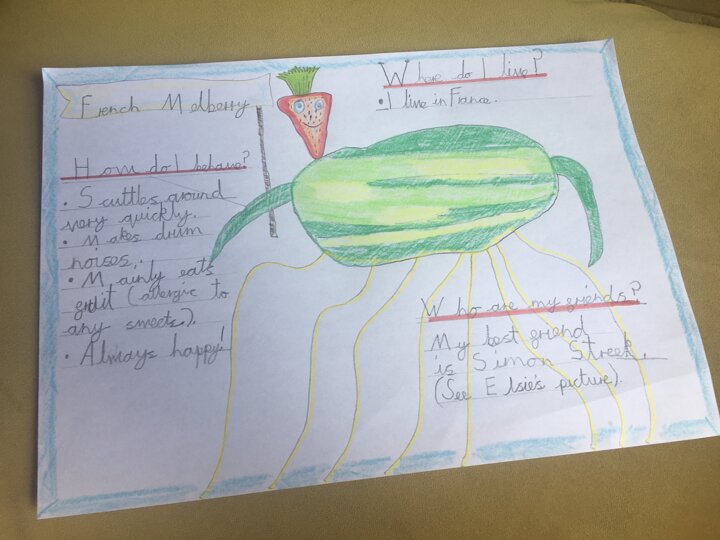 French Melberry
How do I behave?
• Scuttles around
very quickly.
• Makes drum
noises.
• Mainly eats
fruit (allergic to
any sweets).
• Always happy!
Where do I live?
• I live in France.
Who are my friends?
My best friend
is Simon Streek.
(See Elsie's picture).